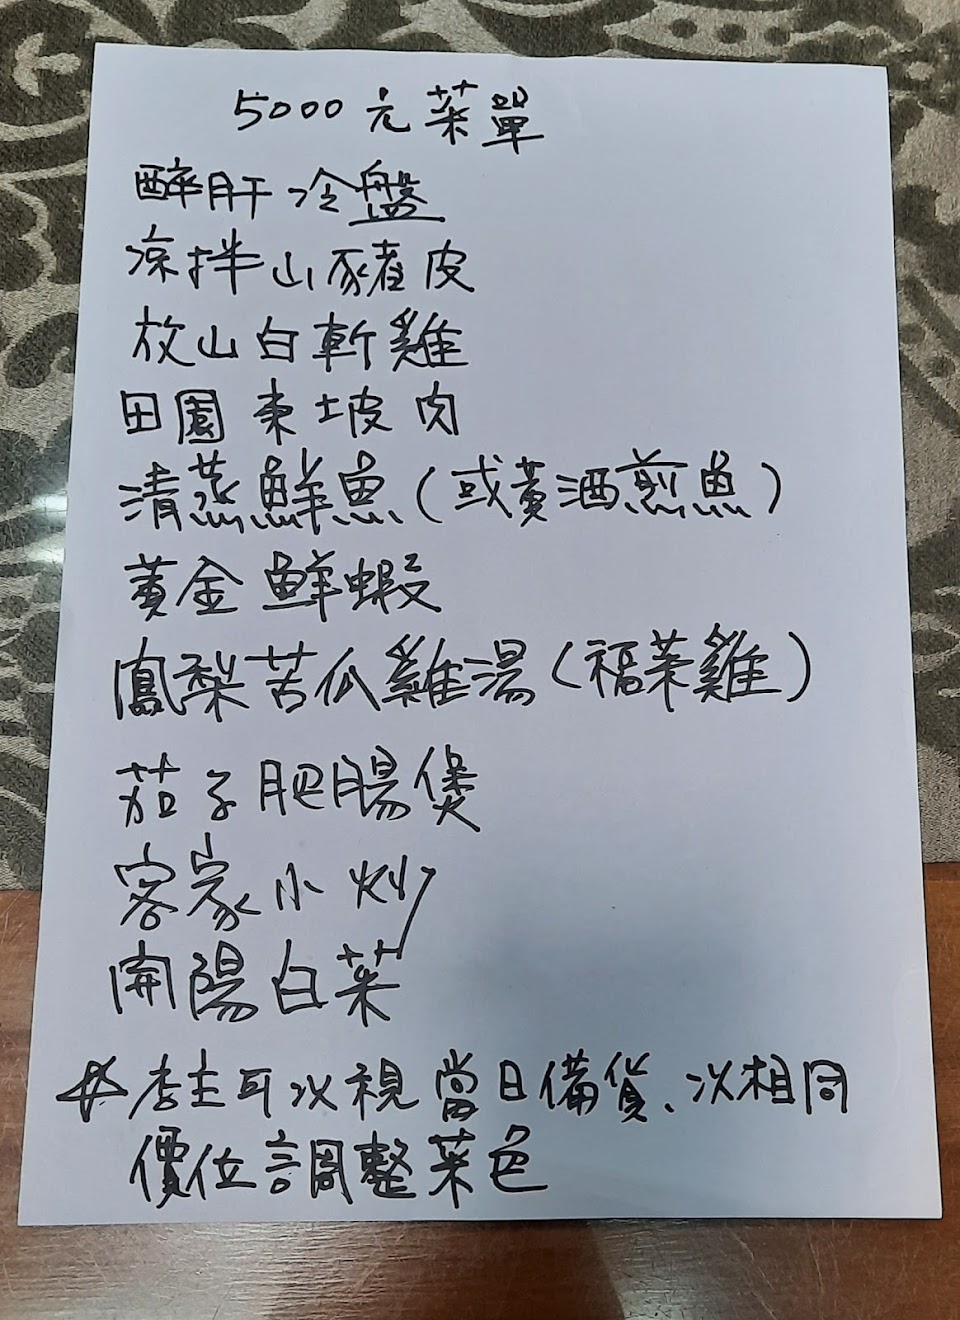 5000元菜單
醉肝冷盤
涼拌山豬皮
放山白斬雞
田園東坡肉
清蒸鮮魚(或黃酒煎魚)
黃金鮮蝦
鳳梨苦瓜雞湯(福菜雞)
茄子肥腸煲
客家小炒
開陽白菜
店主可以視當日備貨、以相同
價位調整菜色